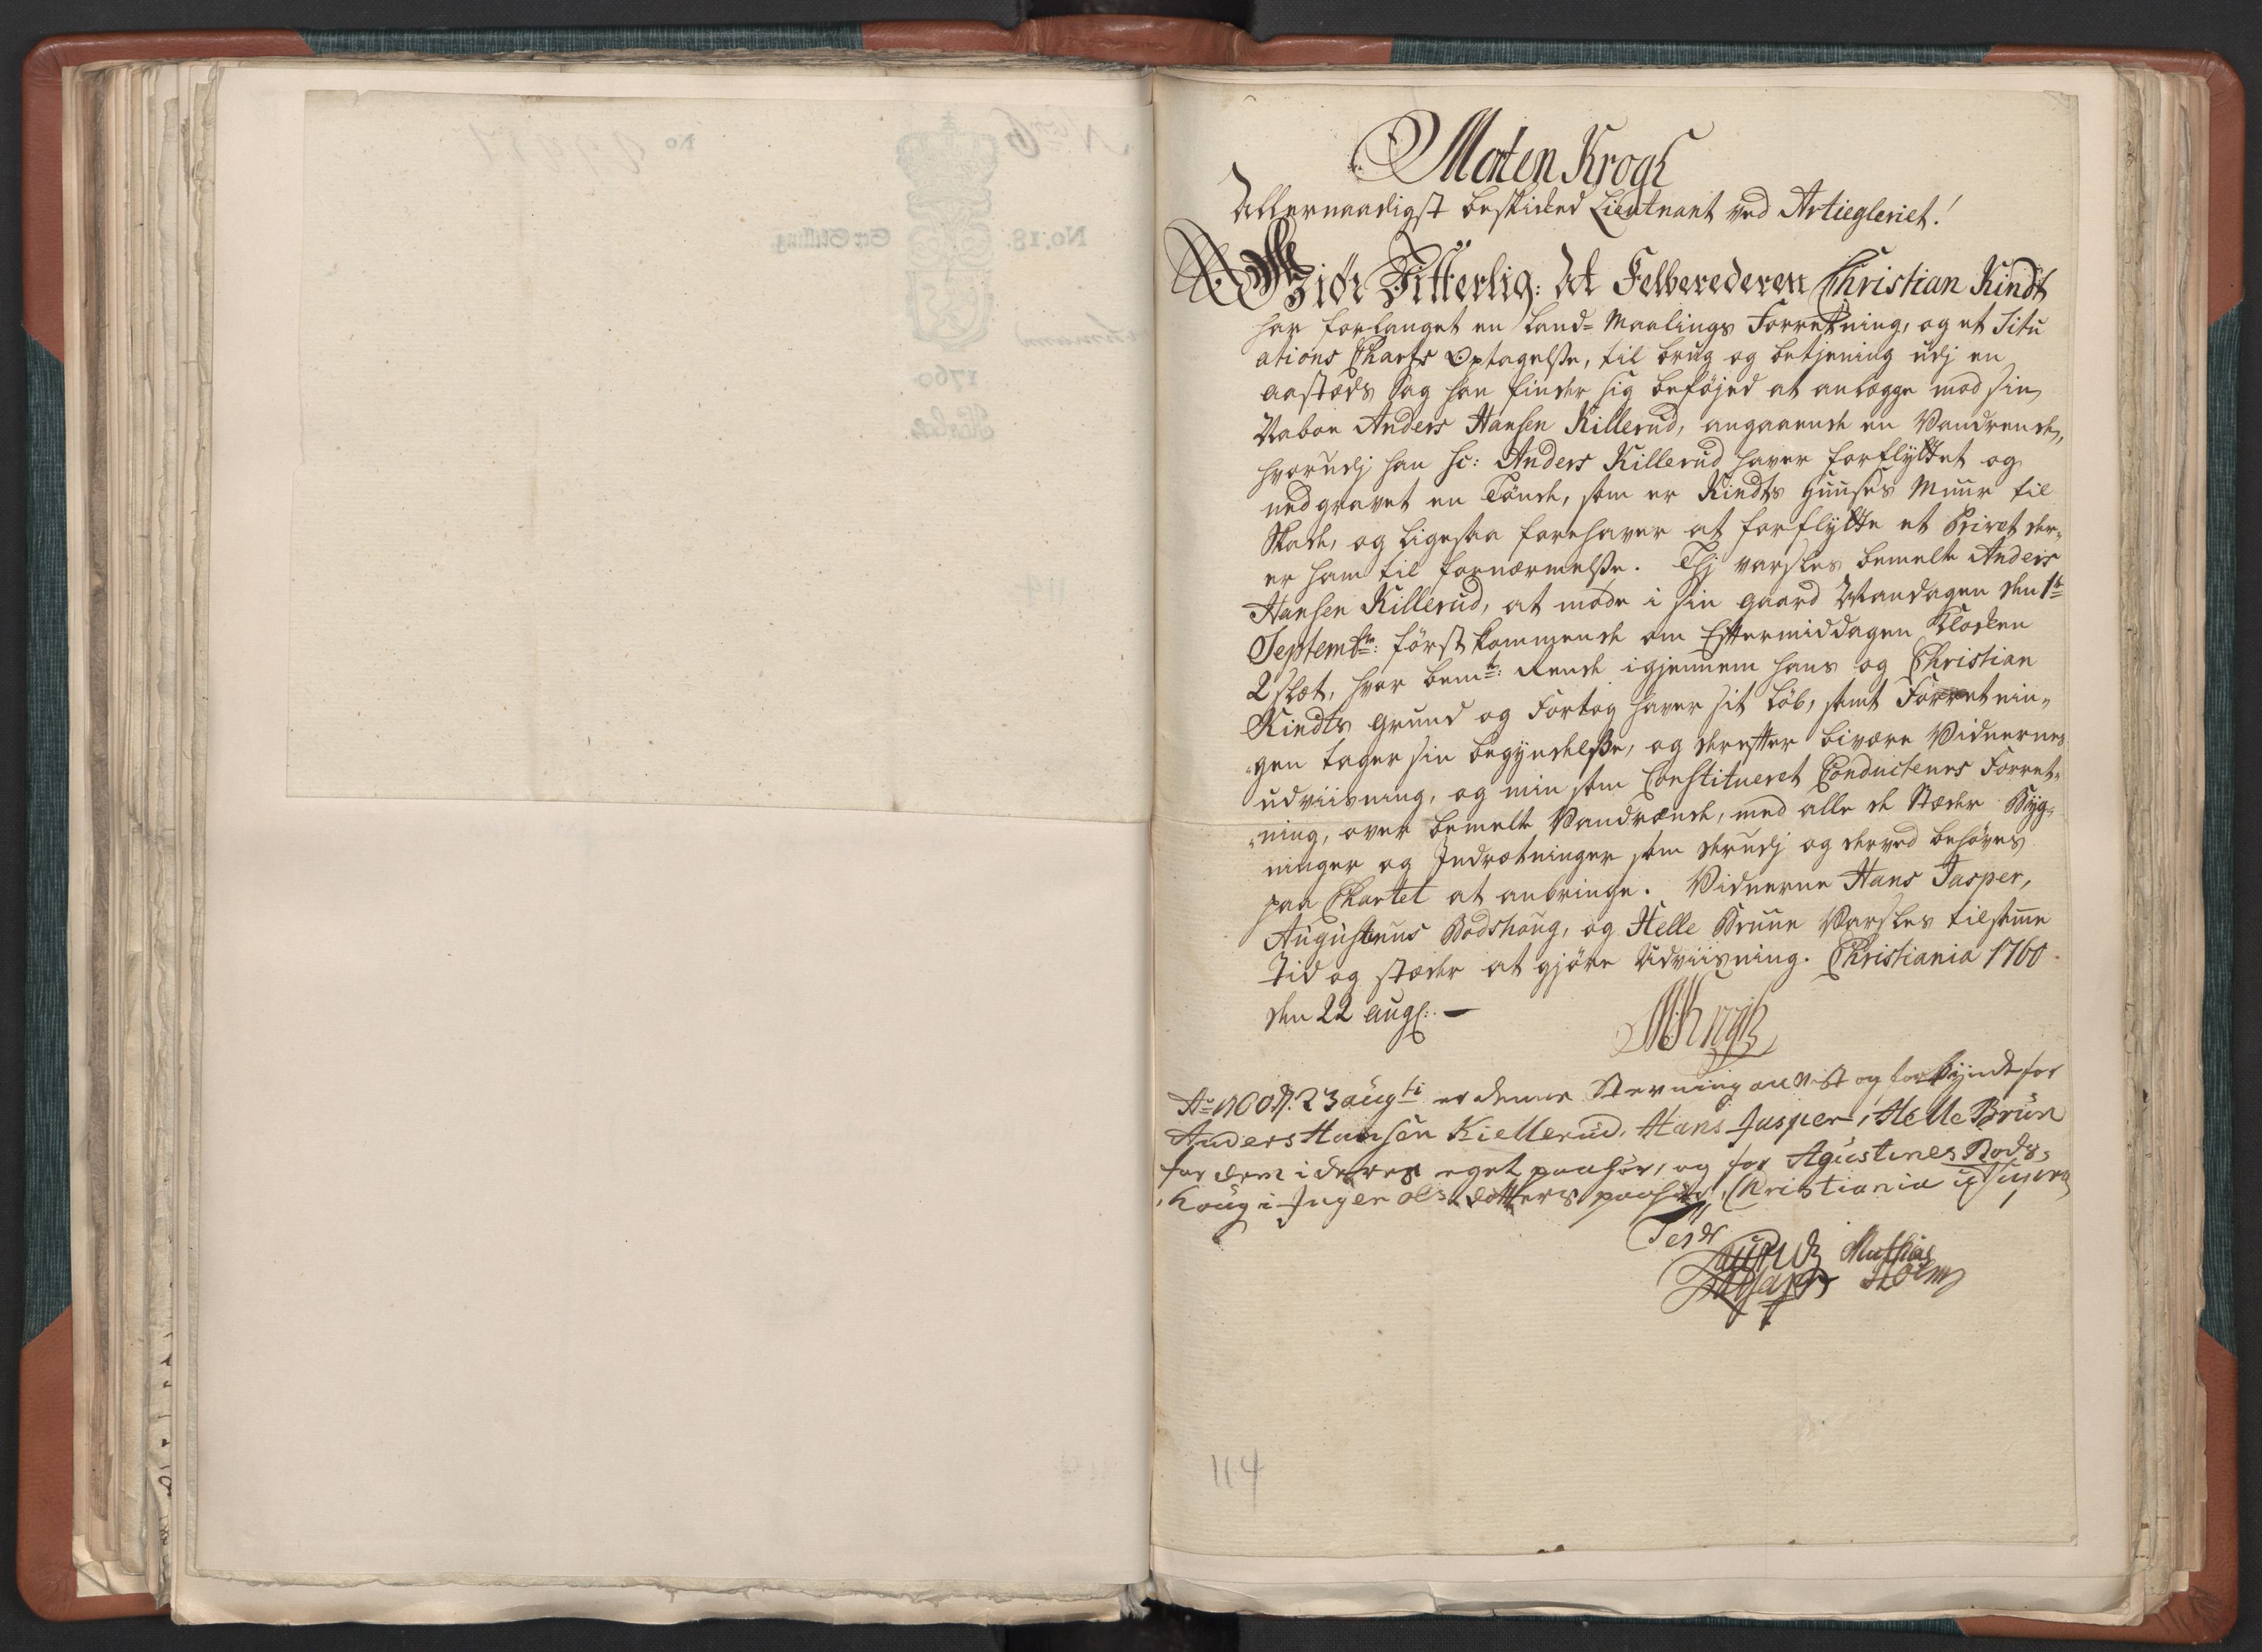 Morten Krogh
Allernaadigst beskicked Lieutnant ved Artiegleriet!
Giør Vitterlig: At Felberederen Christian Kindt
har forlanget en Land- Maalings Forretning, og et Situ
ations Charts Optagelse, til brug og betjening udj en
aasteds Sag han finder sig beføjed at anlægge mod sin
Naboe Anders Hansen Killerud, angaaende en Vandrende,
hvorudj han sc: Anders Killerud haver forflyttet og
nedgravet en Tønde, som er Kindts Huuses Muur til
Skade, og ligesaa forehaver at forflytte et Privet der,,
er ham til fornærmelse. Thj varsles bemelte Anders
Hansen Killerud, at møde i sin gaard Mandagen den 1te
Septembr: førstkommende om Eftermiddagen Klocken
2 slæt, hvor bemte: Rende igjennem hans og Christian
Kindts grund og Fortog haver sit Løb, samt Forretnin,,
,,gen tager sin begyndelse, og derefter bivære Vidnernes
udviisning, og min som Constitueret Conducteurs Forret,,
,,ning, over bemelte Vandrænde, med alle de Stæder Byg,,
ninger og Indrætninger som derudj og derved behøves
paa Chartet at anbringe. Vidnerne Hans Jasper,
Augustinus Bodshoug, og Helle Bruun Varsles til samme
Tid og stæder at gjøre Udviisning. Christiania 1760
den 22 aug:
MKrogh
Ao 1760 d. 23 augti er denne Stevning anvist og forkyndt for
Anders Hansen Kiellerud, Hans Jasper, Helle Brun
for dem i deres eget paahør, og for Agustines Bods,
houg i Inger olsdotters paahør, Christiania ut Supra
Test
Mathias
Holm
114
No 6
No
No. 18.
Sex Skilling
1760
114